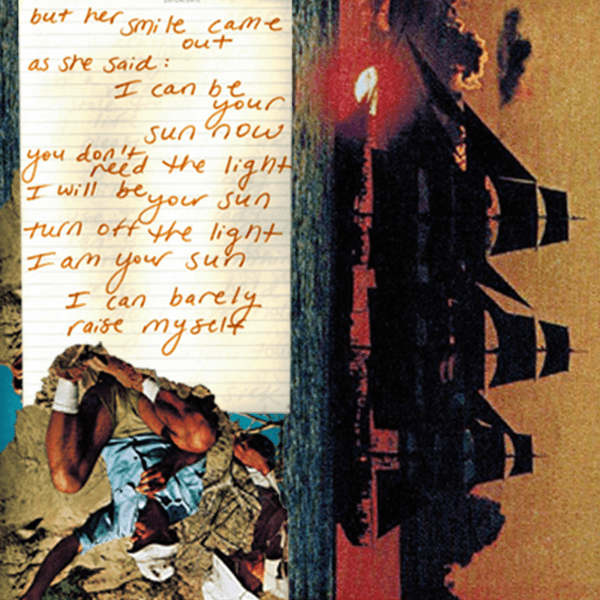 but her smile came
out
as she said:
I can be
your
sun now
you don't
need the light
I will be your sun
turn off the light
I am your sun
I can barely
raise myself